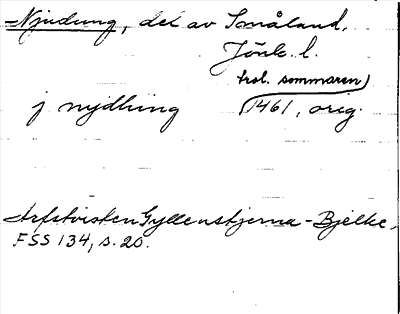 Njudung, del av Småland,
Jönk. l.
trol. sommaren
j nydhung 1461, orig.
Arfstvisten Gyllenstjerna-Bjelke,
FSS 134, s. 20.